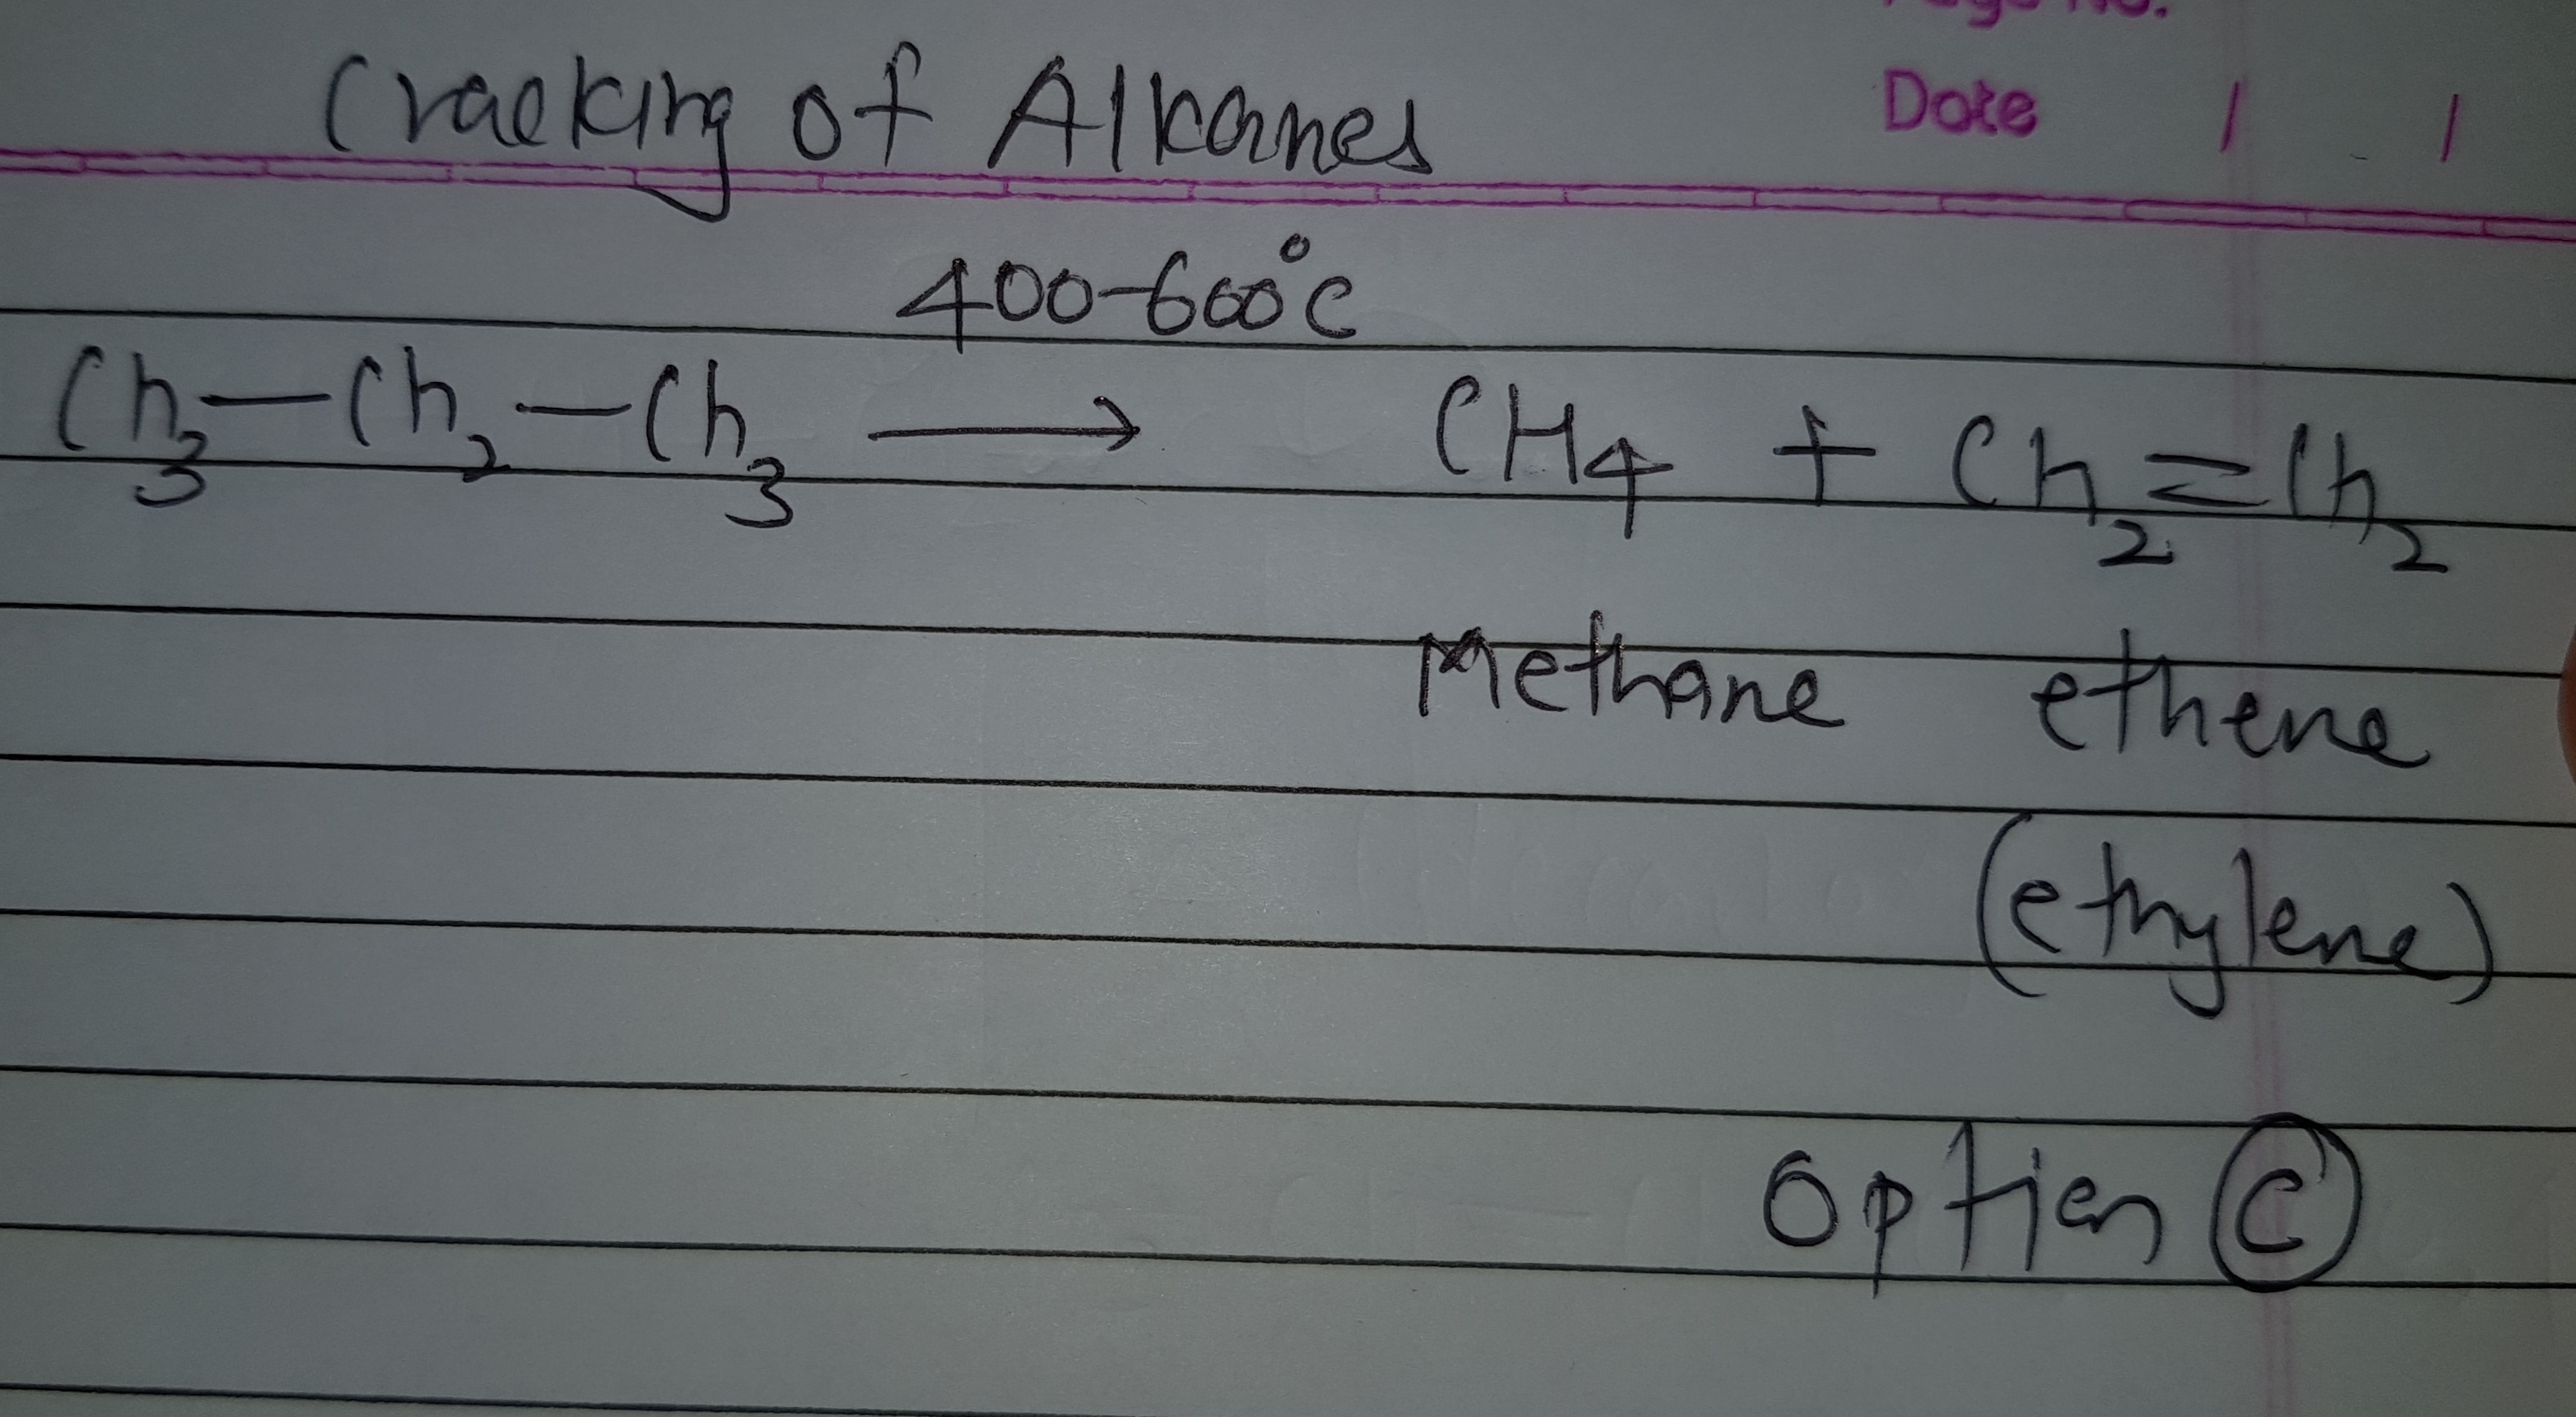 Date / /
Cracking of Alkanes
400-600°C
Ch₃-Ch₂-Ch₃ → CH₄ + Ch₂=Ch₂
Methane ethene
(ethylene)
Option C